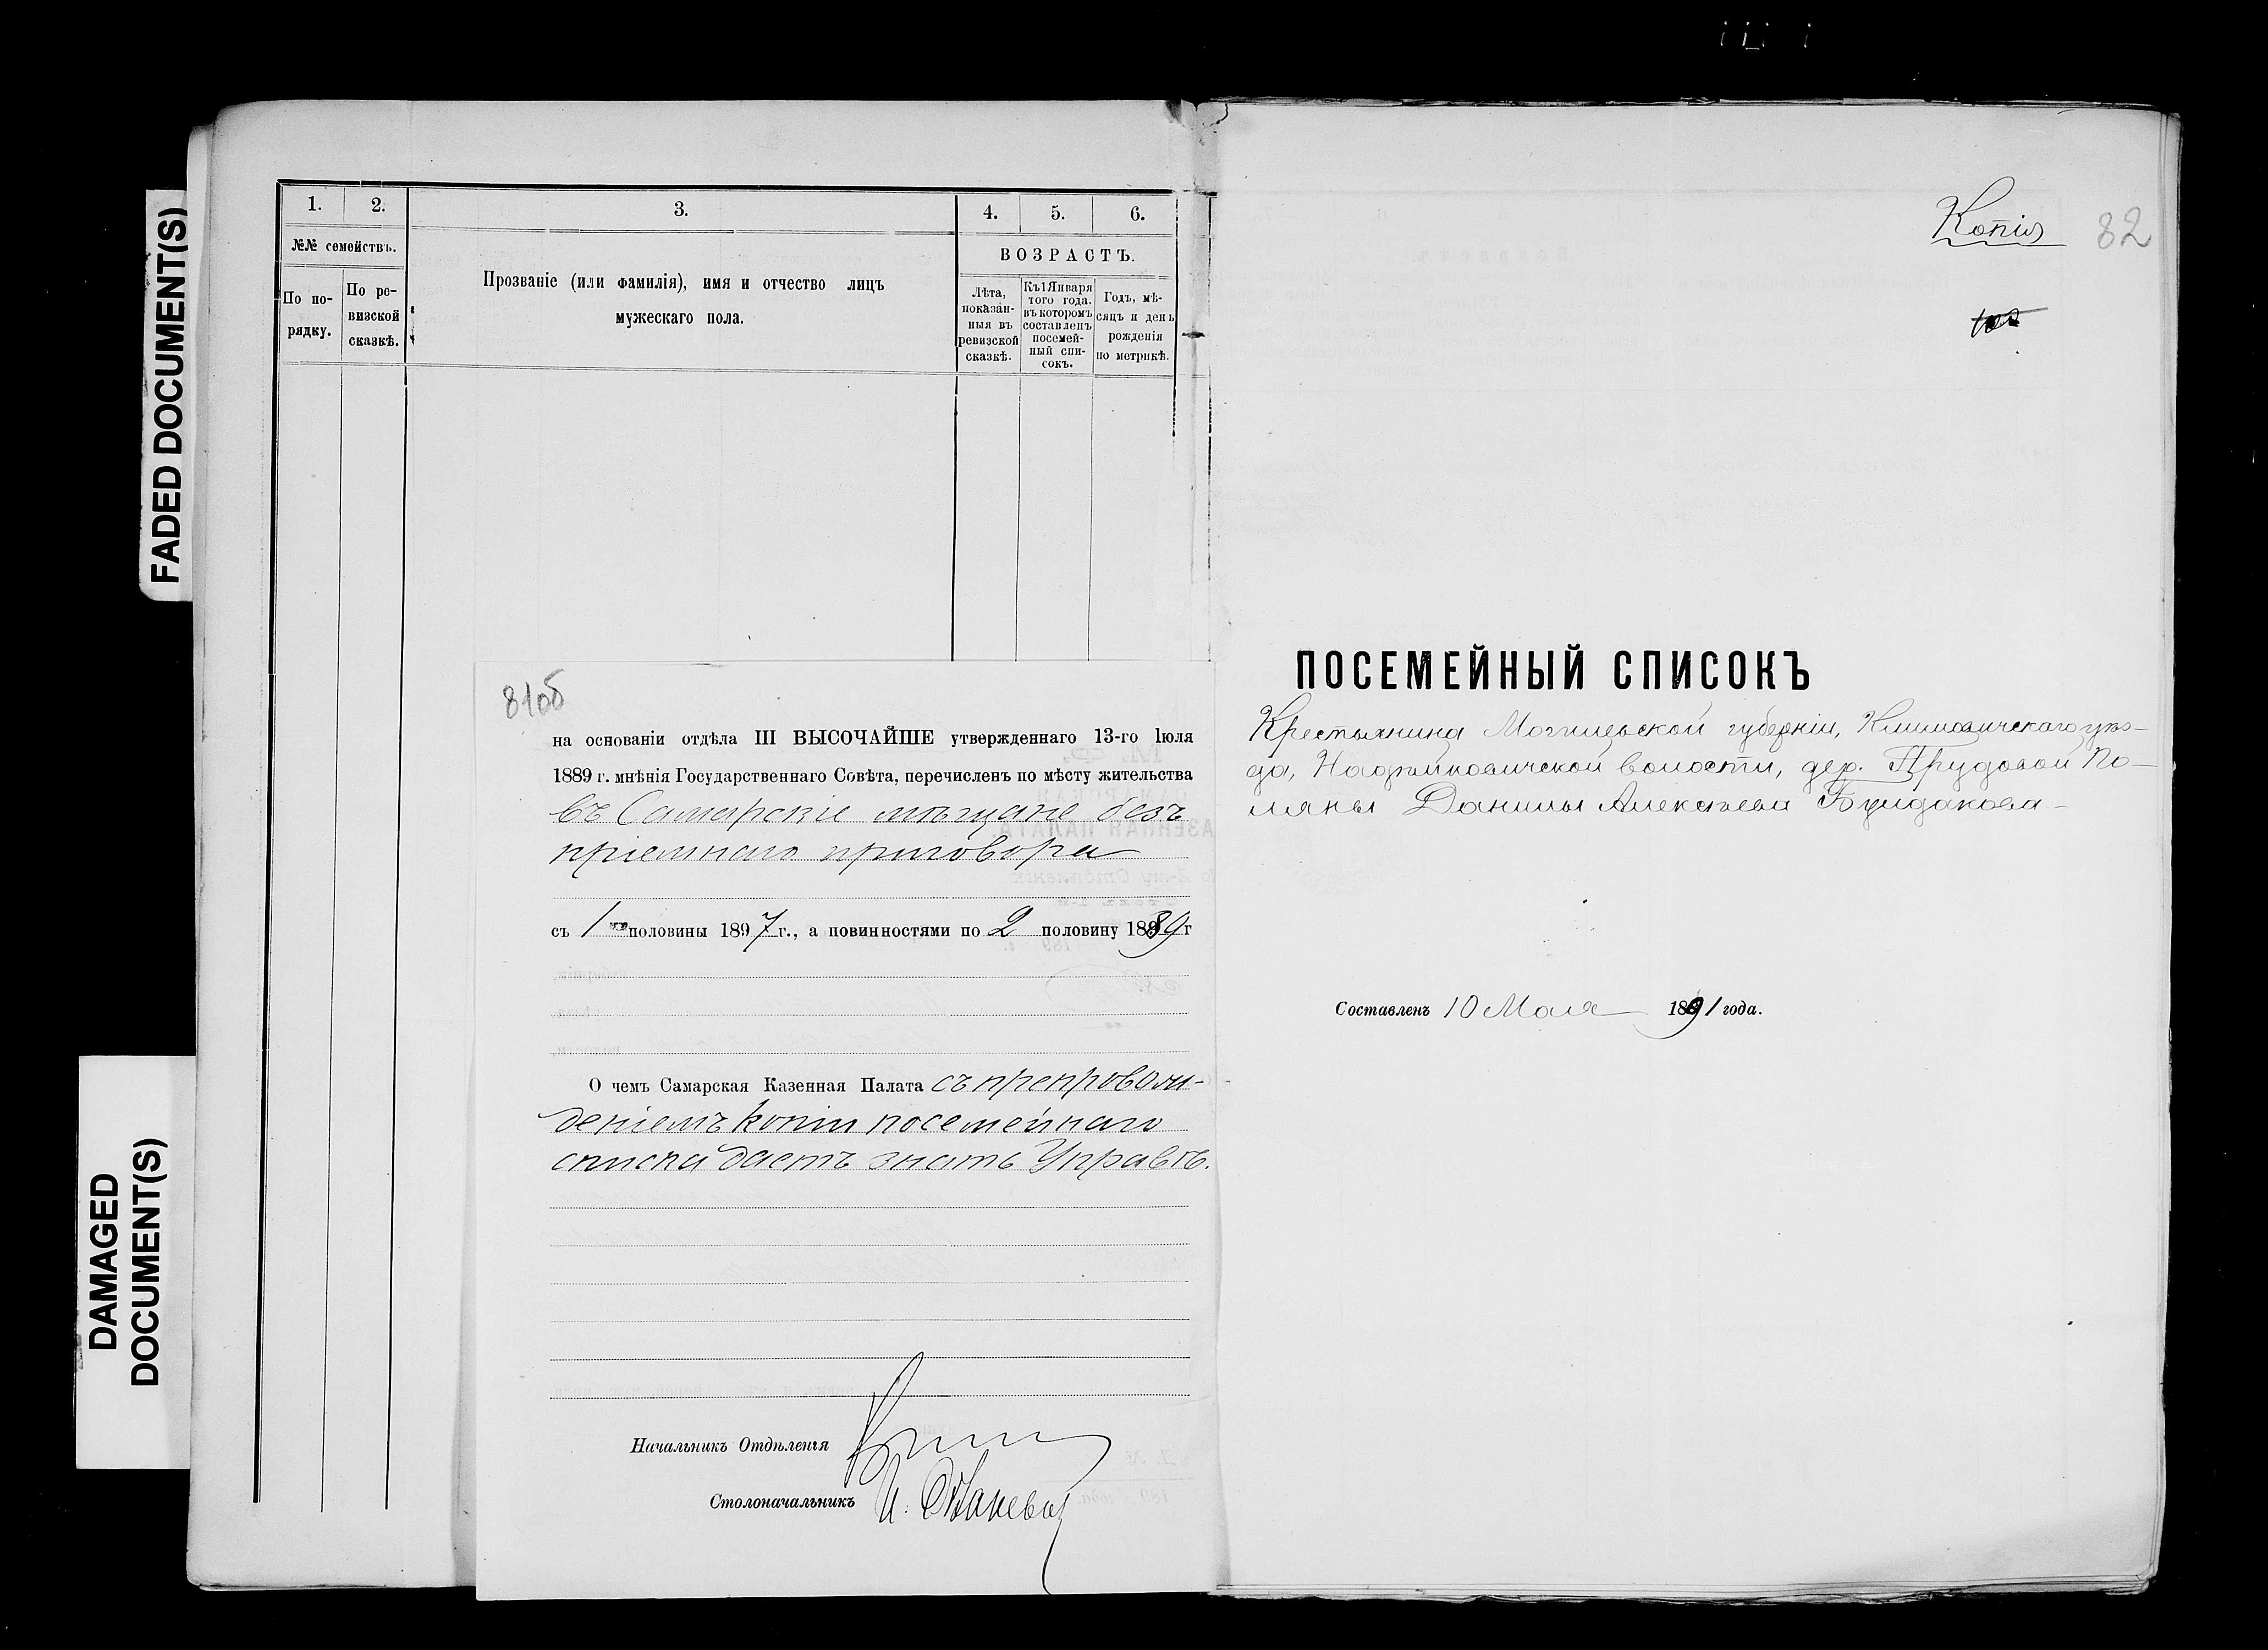 FADED DOCUMENT(S)
DAMAGED
DOCUMENT(S)
1. 2. 3. 4. 5. 6.
№№ семействъ.
По по-
рядку.
По ре-
визской
сказкѣ.
Прозваніе (или фамилія), имя и отчество лицъ
мужескаго пола.
ВОЗРАСТЪ.
Лѣта,
показан-
ныя въ
ревизской
сказкѣ.
Къ 1 Января
того года,
въ которомъ
составленъ
посемей-
ный спи-
сокъ.
Годъ, мѣ-
сяцъ и день
рожденія
по метрикѣ.
81об
на основаніи отдѣла III ВЫСОЧАЙШЕ утвержденнаго 13-го Іюля
1889 г. мнѣнія Государственнаго Совѣта, перечисленъ по мѣсту жительства
въ Самарскіе мѣщане безъ
пріемнаго приговора
съ 1 половины 1897 г., а повинностями по 2 половину 1889 г
О чемъ Самарская Казенная Палата съ препровож-
деніемъ копіи посемейнаго
списка даетъ знать Управѣ.
Начальникъ Отдѣленія
Столоначальникъ
Копія
82
ПОСЕМЕЙНЫЙ СПИСОКЪ
Крестьянина Могилевской губерніи, Климовичскаго уѣз-
да, волости, дер. Прудовой По-
ляны Данилы Алексѣева
Составленъ 10 Мая 1891 года.